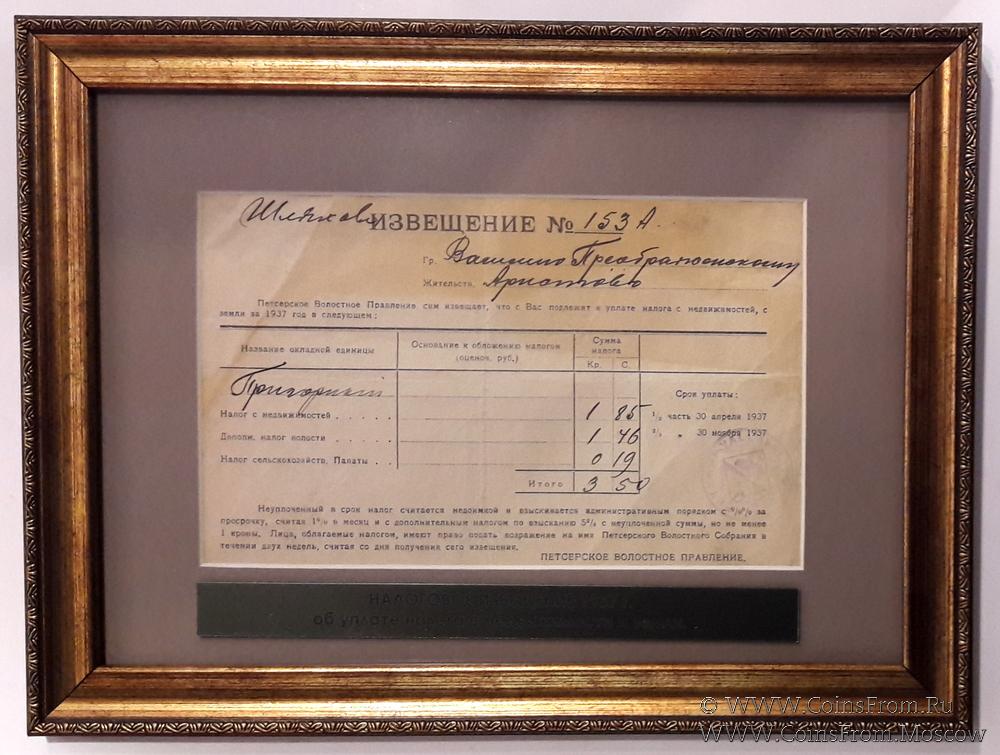 ИЗВЕЩЕНИЕ № 153 А.
Гр. Василию Преображенскому
Жительств.
Петсерское Волостное Правление сим извещает, что с Вас подлежит к уплате налога с недвижимостей, с
земли за 1937 год в следующем:
Название окладной единицы Основание к обложению налогом Сумма
(оценоч. руб.) налога
Кр. С.
Срок уплаты:
Налог с недвижимостей . . . . . 1 85 ½ часть 30 апреля 1937
Дополн. налог волости . . . . . 1 46 „ 30 ноября 1937
Налог сельскохозяйств. Палаты . . 0 19
Итого 3 50
Неуплоченный в срок налог считается недоимкой и взыскивается административным порядком с % % за
просрочку, считая 1% в месяц и с дополнительным налогом по взысканию 5% с неуплоченной суммы, но не менее
1 кроны. Лица, облагаемые налогом, имеют право подать возражение на имя Петсерского Волостного Собрания в
течении двух недель, считая со дня получения сего извещения.
ПЕТСЕРСКОЕ ВОЛОСТНОЕ ПРАВЛЕНИЕ.
об уплате
© WWW.CoinsFrom.Ru
WWW.CoinsFrom.Moscow